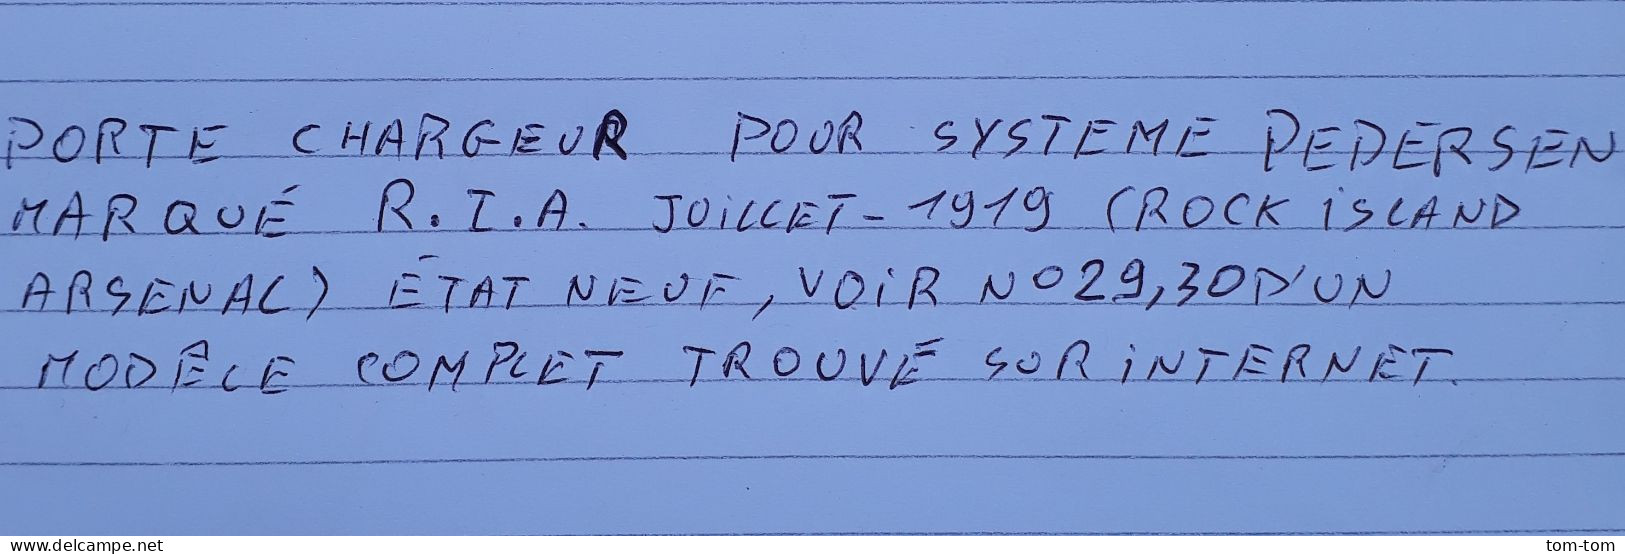 PORTE CHARGEUR POUR SYSTEME PEDERSEN
MARQUÉ R.I.A. JUILLET-1919 (ROCK ISLAND
ARSENAL) ÉTAT NEUF, VOIR N°29,30 D'UN
MODÊLE COMPLET TROUVÉ SUR INTERNET.
www.delcampe.net
tom-tom